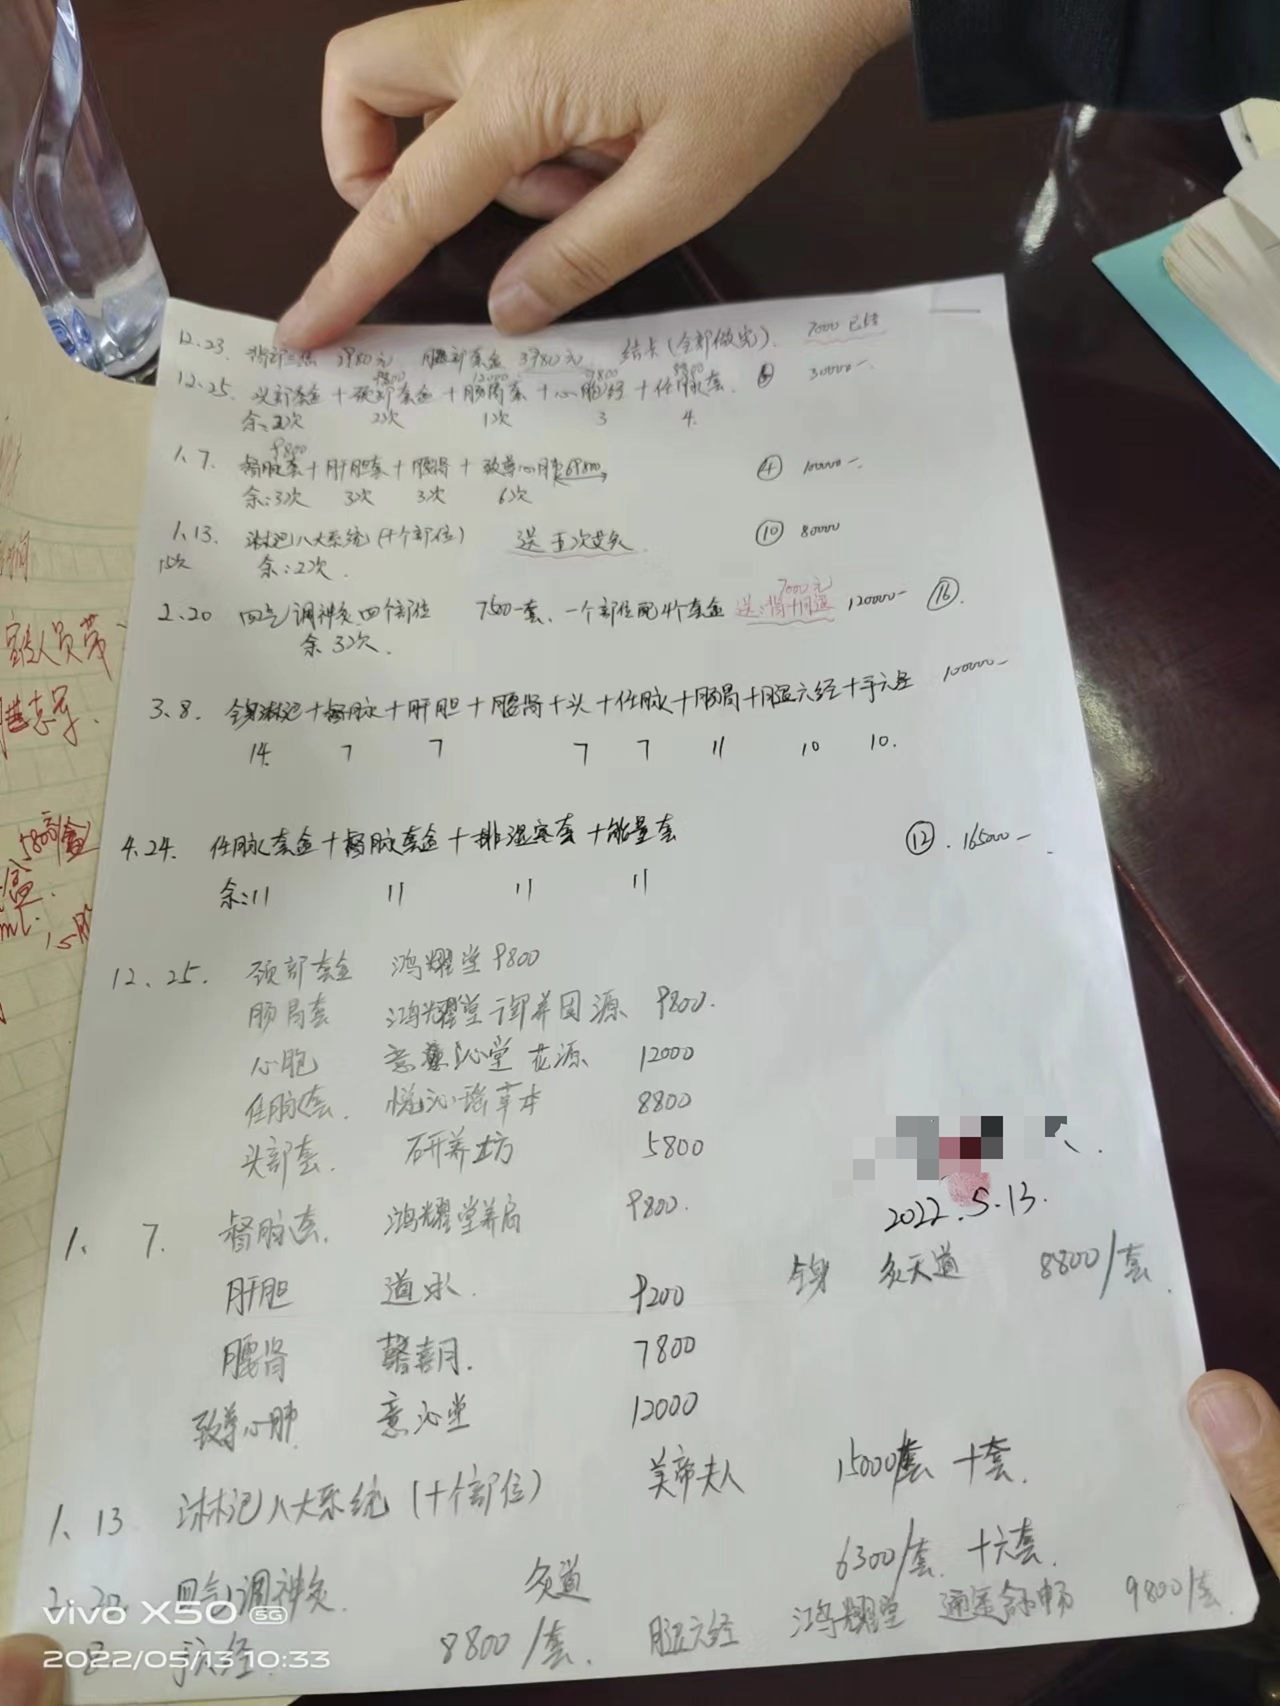 12.23. 背部三焦 3980元 腿部套盒 3980元 结卡(全部做完). 7000 已结
9800 12000 9800 8800
12.25. 头部套盒+颈部套盒+肠胃套+心胞经+任脉套. 30000一.
余:2次 2次 1次 3 4.
9800
1、7. 督脉套+肝胆套+腰肾+致尊心肺 69800 ④ 10000一.
余:3次 3次 3次 6次
1、13. 淋巴八大系统(十个部位) 送五次艾灸. ⑩ 80000
15次 余:2次.
7000元
2.20 四气调神灸.四个部位 7500一套、一个部位配4个套盒 送:背+问道 120000- ⑯.
余 3次.
3.8. 全身淋巴+督脉+肝胆+腰肾+头+任脉+肠胃+腿六经+手六经 100000一
14. 7 7 7 7 11 10 10.
4.24. 任脉套盒+督脉套盒+排湿寒套+能量套 ⑫. 165000一
余:11 11 11 11
12、25. 颈部套盒 鸿耀堂 9800
肠胃套 鸿耀堂御养固源 9800.
心胞 意沁堂 花源 12000
任脉套. 悦沁瑶草本 8800
头部套. 研养坊 5800
2022.5.13.
1、7. 督脉套. 鸿耀堂养局 9800.
全身 灸天道 8800/套.
肝胆 道水. 9200
腰肾 7800
致尊心肺. 意沁堂 12000
1、13 淋巴八大系统(十个部位) 美帝夫人 15000/套 十套.
2.20. 四气调神灸. 灸道 6300/套. 十六套.
手六经. 8800/套. 腿六经 鸿耀堂 通运舒畅 9800/套.
宣传人员带
5800/盒
盒.
ml.
vivo X50 5G
2022/05/13 10:33